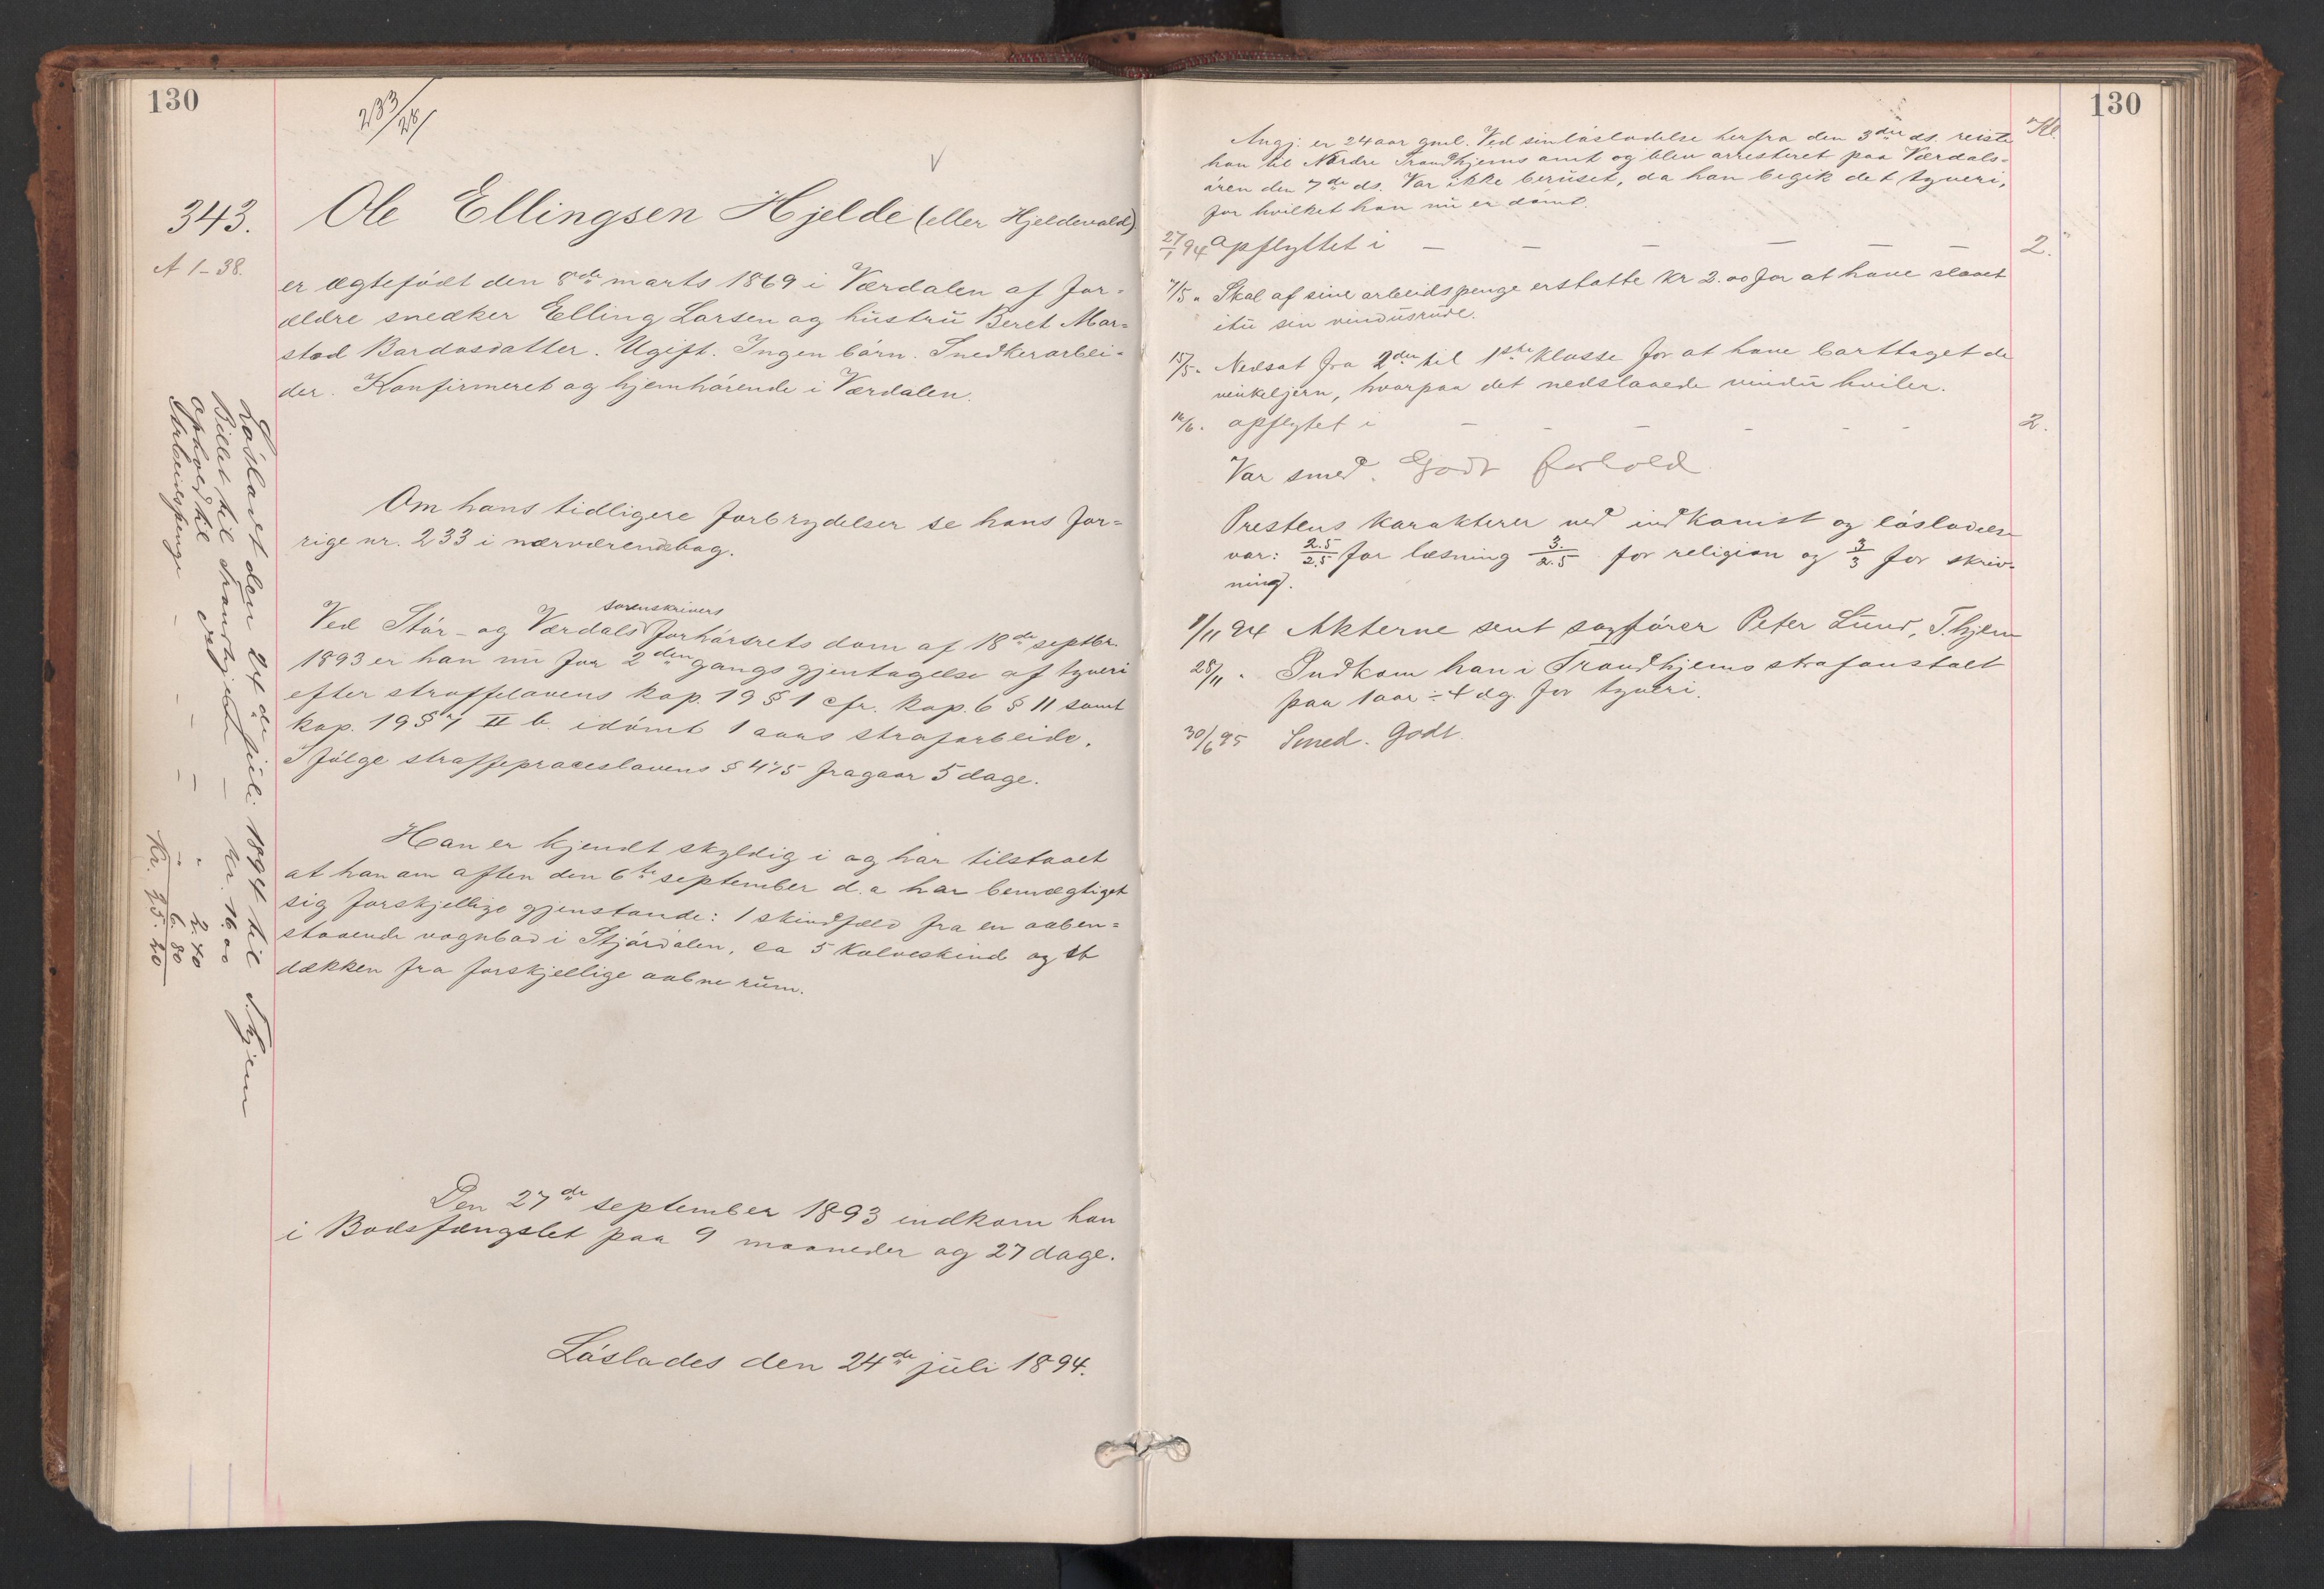 130
233/28/
V
343. Ole Ellingsen Hjelde (eller Hjeldevald)
A 1-38.
er ægtefödt den 8de marts 1869 i Værdalen af for-
ældre snedker Elling Larsen og hustru Beret Mar-
stad Bardosdatter. Ugift. Ingen börn. Snedkerarbei-
der. Konfirmeret og hjemhörende i Værdalen.
Om hans tidligere forbrydelser se hans for-
rige nr. 233 i nærværende bog.
sorenskrivers
Ved Stör- og Værdals forhörsrets dom af 18de septbr.
1893 er han nu for 2den gangs gjentagelse af tyveri
efter straffelovens kap. 19 § 1 cfr. kap. 6 § 11 samt
kap. 19 § 7 II b. idömt 1 aars strafarbeide.
I fölge straffeproceslovens § 475 fragaar 5 dage.
Han er kjendt skyldig i og har tilstaaet
at han om aften den 6te september d.a har bemægtiget
sig forskjellige gjenstande: 1 skindfæld fra en aaben-
staaende vognbod i Stjördalen, ca 5 kalveskind og et
dækken fra forskjellige aabne rum.
Den 27de september 1893 indkom han
i Bodsfængslet paa 9 maaneder og 27 dage.
Löslades den 24de juli 1894.
Lösladt den 24de juli 1894 til T.hjem
Billet til Trondhjem — Kr. 16.00
Ophold til do — — " 2.40
Arbeidspenge — — — — " 6.80
Kr. 25.20
130
Kl.
Angj: er 24 aar gml. Ved sin lösladelse herfra den 3die ds. reiste
han til Nordre Trondhjems amt og blev arresteret paa Værdals-
ören den 7de ds. Var ikke beruset, da han begik det tyveri,
for hvilket han nu er dömt.
27/1 94 Opflyttet i — — — — — — 2.
7/5 " Skal af sine arbeidspenge erstatte Kr 2.00 for at have slaaet
itu sin vindusrude.
15/5 " Nedsat fra 2den til 1ste klasse for at have borttaget de
vinkeljern, hvorpaa det nedslaaede vindu hviler.
16/6 " opflytet i - - - - - - 2.
Var smed. Godt forhold
Prestens karakterer ved indkomst og lösladelse
var: 2.5/2.5 for læsning 3./2.5 for religion og 3/3 for skriv-
ning.
8/11 94 Akterne sent sagförer Peter Lund, T.hjem
28/11 " Indkom han i Trondhjems strafanstalt
paa 1 aar ÷ 4 dg. for tyveri.
30/6 95 Smed. Godt.